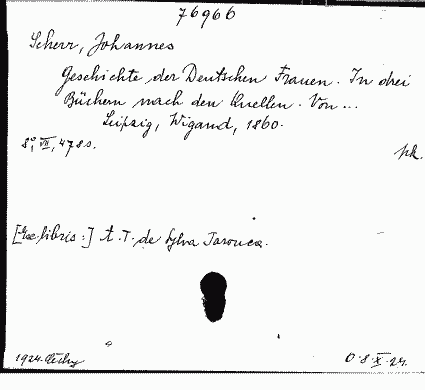 76966
Scherr, Johannes
Geschichte der Deutschen Frauen. In drei
Büchern nach den Quellen. Von ...
Leipzig, Wigand, 1860.
8°, VII, 478 s.
pk.
[Ex-libris:] A. T. de Sylva Tarouca.
1924.
0.8.X.24.